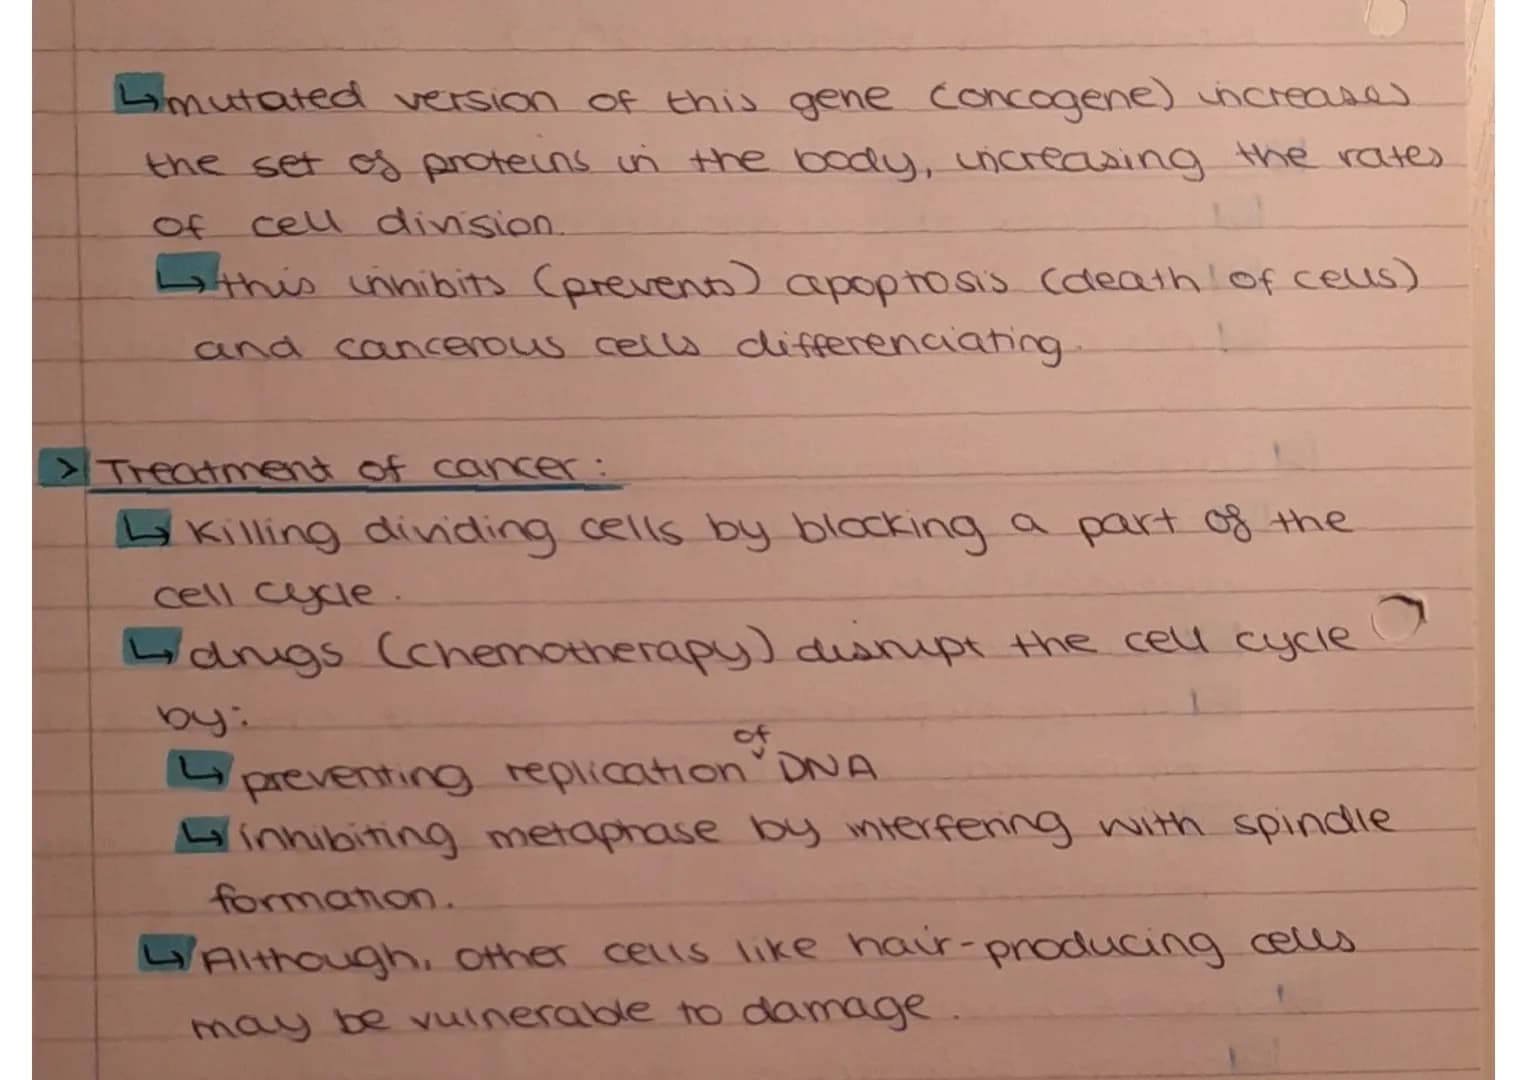 ↳mutated version of this gene (oncogene) increases
the set of proteins in the body, increasing the rates
of cell division.
↳this inhibits (prevents) apoptosis (death of cells)
and cancerous cells differenciating.
> Treatment of cancer:
↳ Killing dividing cells by blocking a part of the
cell cycle.
↳drugs (chemotherapy) disrupt the cell cycle
by:
↳preventing replication of DNA
↳inhibiting metaphase by interfering with spindle
formation.
↳Although, other cells like hair-producing cells
may be vulnerable to damage.